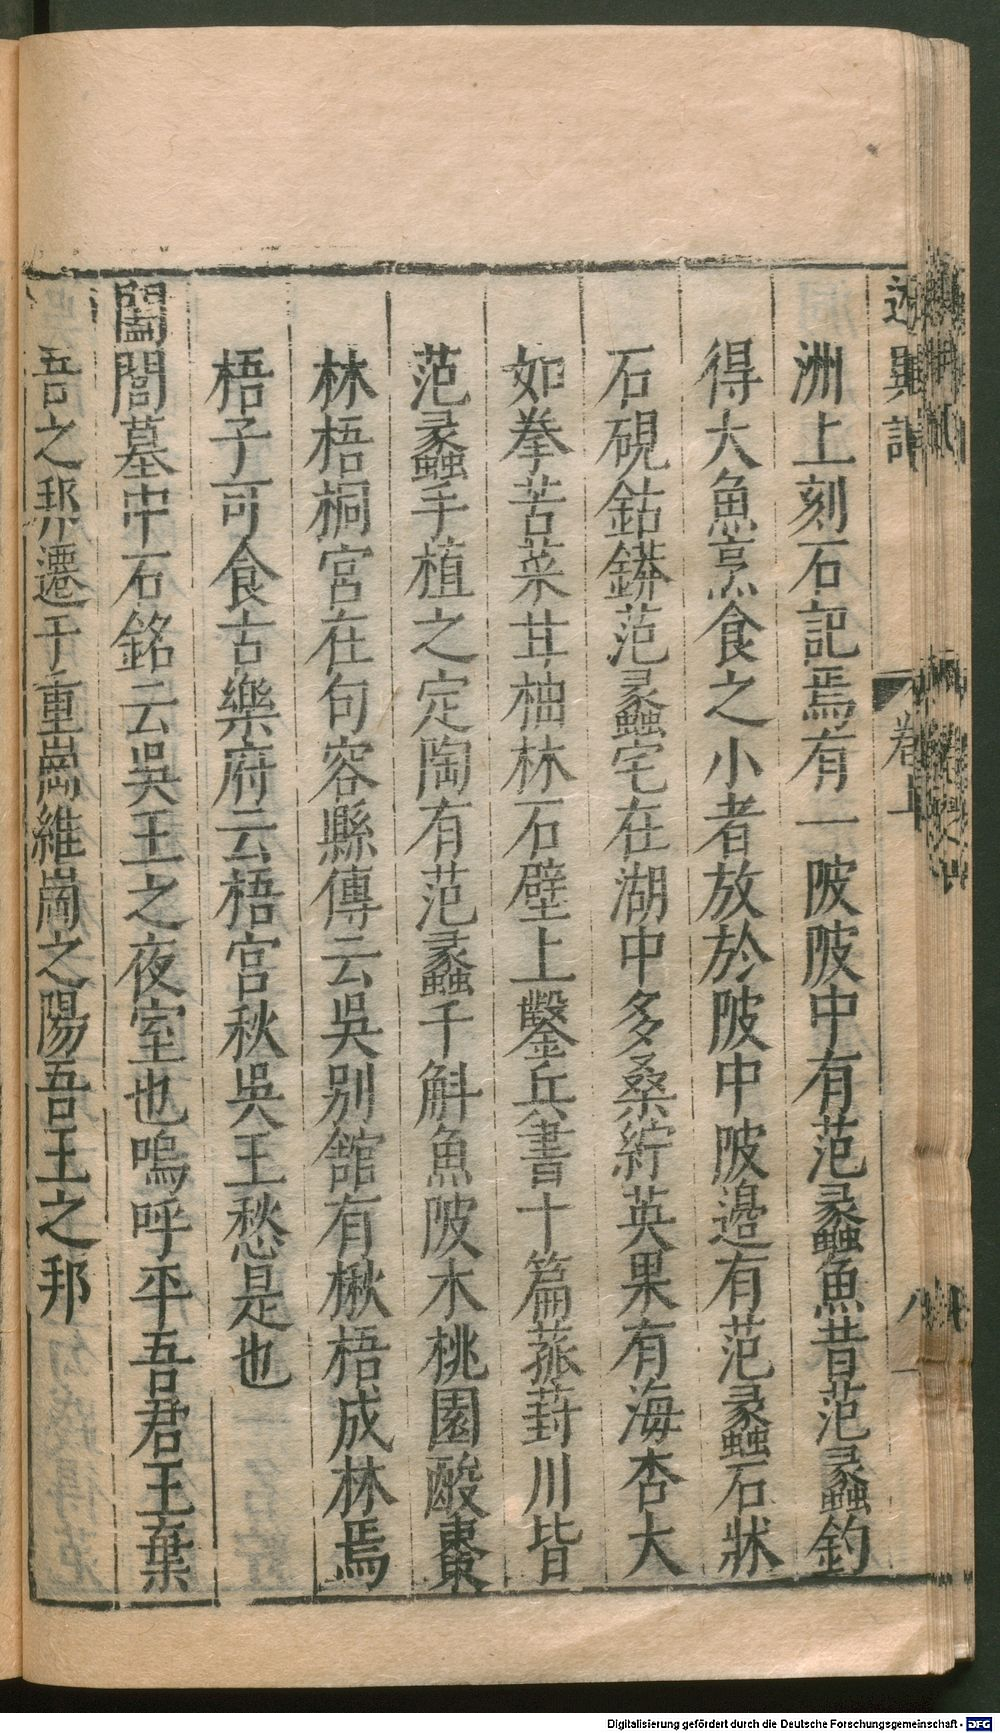 述異記 卷上 八
洲上刻石記焉有一陂陂中有范蠡魚昔范蠡釣
得大魚烹食之小者放於陂中陂邉有范蠡石牀
石硯鈷鉧范蠡宅在湖中多桑紵英果有海杏大
如拳苦菜甘柚林石壁上鑿兵書十篇蒸葑川皆
范蠡手植之定陶有范蠡千斛魚陂木桃園酸棗
林梧桐宮在句容縣傳云吳别舘有楸梧成林焉
梧子可食古樂府云梧宮秋吳王愁是也
闔閭墓中石銘云吳王之夜室也嗚呼平吾君王棄
吾之邦遷于重崗維崗之陽吾王之邦
Digitalisierung gefördert durch die Deutsche Forschungsgemeinschaft - DFG